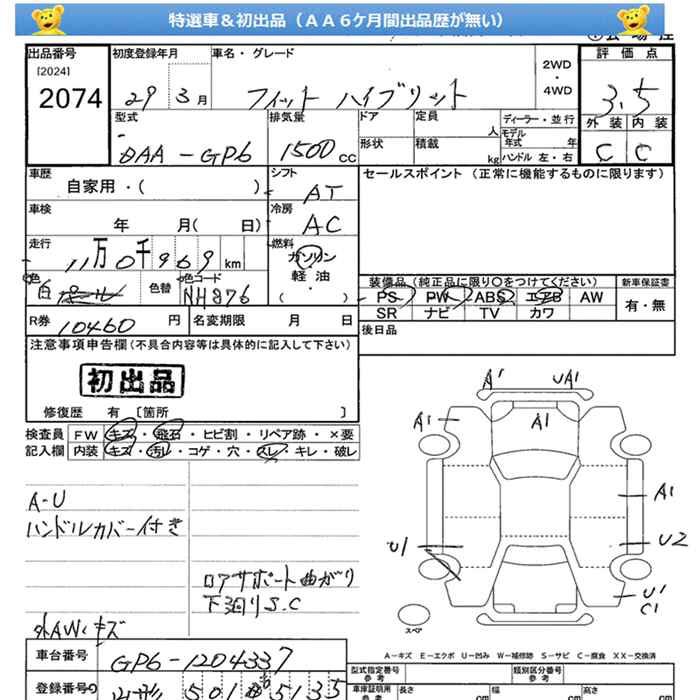 特選車＆初出品（ＡＡ６ケ月間出品歴が無い）
出品番号 初度登録年月 車名・グレード 評価点
[2024]
2074
29 3月
フィット ハイブリット
2WD
・
4WD
3.5
外装 内装
C C
型式
DAA-GP6
排気量
1500 cc
ドア 定員 人
形状 積載 kg
ディーラー・並行
モデル年式 年
ハンドル 左・右
車歴
自家用・( )
シフト
AT
セールスポイント（正常に機能するものに限ります）
車検
年 月( 日)
冷房
AC
走行
11万0千969km
燃料
ガソリン
軽油
( )
色
白パール
色替
色コード
NH876
装備品（純正品に限り○をつけてください） 新車保証書
PS PW ABS エアB AW
SR ナビ TV カワ
有・無
R券 10460円 名変期限 月 日
後日品
注意事項申告欄（不具合内容等は具体的に記入して下さい）
初出品
修復歴 有 [箇所 ]
検査員記入欄
FW キズ・飛石・ヒビ割・リペア跡・×要
内装 キズ・汚レ・コゲ・穴・スレ・キレ・破レ
A-U
ハンドルカバー付き
ロアサポート曲がり
下廻りS.C
外AWキズ
A' UA1
A1 A1
A1
U1 U2
U'
C1
スペア
A−キズ E−エクボ U−凹み W−補修跡 S−サビ C−腐食 XX−交換済
車台番号 GP6-1204337
型式指定番号
参考
類別区分番号
参考
登録番号 山形 501 5135
車庫証明用
参考
長さ cm 幅 cm 高さ cm